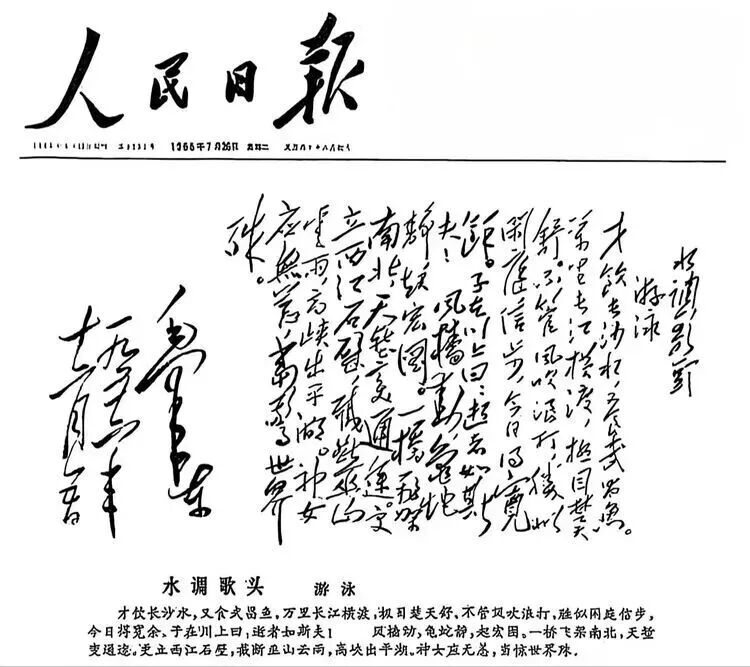 人民日报
1966年7月26日 星期二
水调歌头
游泳
才饮长沙水,又食武昌鱼。
万里长江横渡,极目楚天
舒。不管风吹浪打,胜似
闲庭信步,今日得宽
馀。子在川上曰:逝者如斯
夫!风樯动,龟蛇
静,起宏图。一桥飞架
南北,天堑变通途。更
立西江石壁,截断巫山
云雨,高峡出平湖。神女
应無恙,当驚世界
殊。
毛泽东
一九五六年
十二月五日
水调歌头 游泳
才饮长沙水,又食武昌鱼,万里长江横渡,极目楚天舒、不管风吹浪打,胜似闲庭信步,
今日得宽余、子在川上曰,逝者如斯夫! 风樯动,龟蛇静,起宏图。一桥飞架南北,天堑
变通途。更立西江石壁,截断巫山云雨,高峡出平湖。神女应无恙,当惊世界殊.